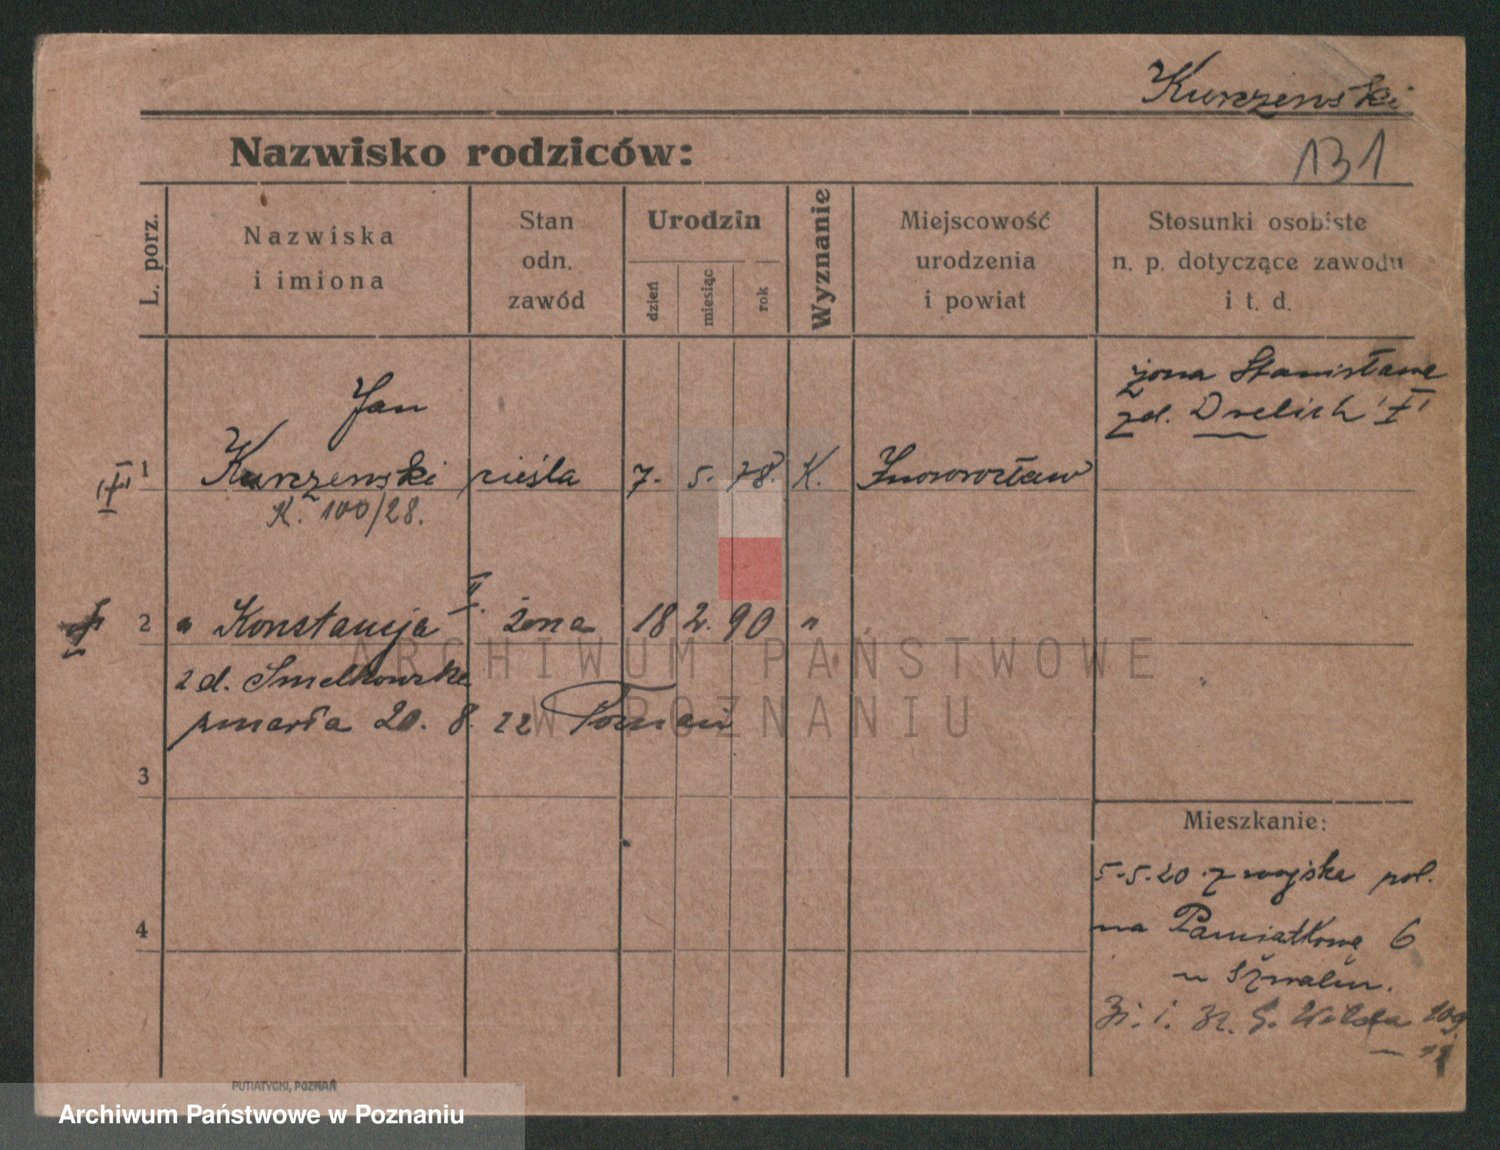 Kurzewski
Nazwisko rodziców:
131
L. porz.
Nazwiska
i imiona
Stan
odn.
zawód
Urodzin
dzień
miesiąc
rok
Wyznanie
Miejscowość
urodzenia
i powiat
Stosunki osobiste
n. p. dotyczące zawodu
i t. d.
żona Stanisława
zd. Drelich
Jan
1 Kurzewski cieśla 7. 5. 78. K. Inowrocław
K. 100/28.
2 " Konstancja II. żona 18 2. 90 "
zd. Smelkowska
zmarła 20. 8. 22 Poznań
3
4
Mieszkanie:
5.5.20 z wojska pol.
na Pamiątkowę 6
u Szwalm.
G. Wilda 109
PUTIATYCKI, POZNAŃ
ARCHIWUM PAŃSTWOWE
W POZNANIU
Archiwum Państwowe w Poznaniu